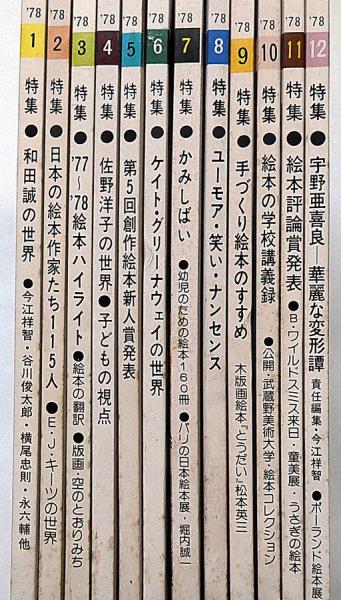 '78 1 特集●和田誠の世界●今江祥智・谷川俊太郎・横尾忠則・永六輔 他
'78 2 特集●日本の絵本作家たち115人●E・J・キーツの世界
'78 3 特集●'77〜'78絵本ハイライト●絵本の翻訳●版画・空のとおりみち
'78 4 特集●佐野洋子の世界●子どもの視点
'78 5 特集●第5回創作絵本新人賞発表
'78 6 特集●ケイト・グリーナウェイの世界
'78 7 特集●かみしばい●幼児のための絵本160冊●パリの日本絵本展・堀内誠一
'78 8 特集●ユーモア・笑い・ナンセンス
'78 9 特集●手づくり絵本のすすめ 木版画絵本『とうだい』松本英三
'78 10 特集●絵本の学校講義録●公開・武蔵野美術大学・絵本コレクション
'78 11 特集●絵本評論賞発表●B・ワイルドスミス来日・童美展・うさぎの絵本
'78 12 特集●宇野亜喜良―華麗な変形譚 責任編集・今江祥智●ポーランド絵本展